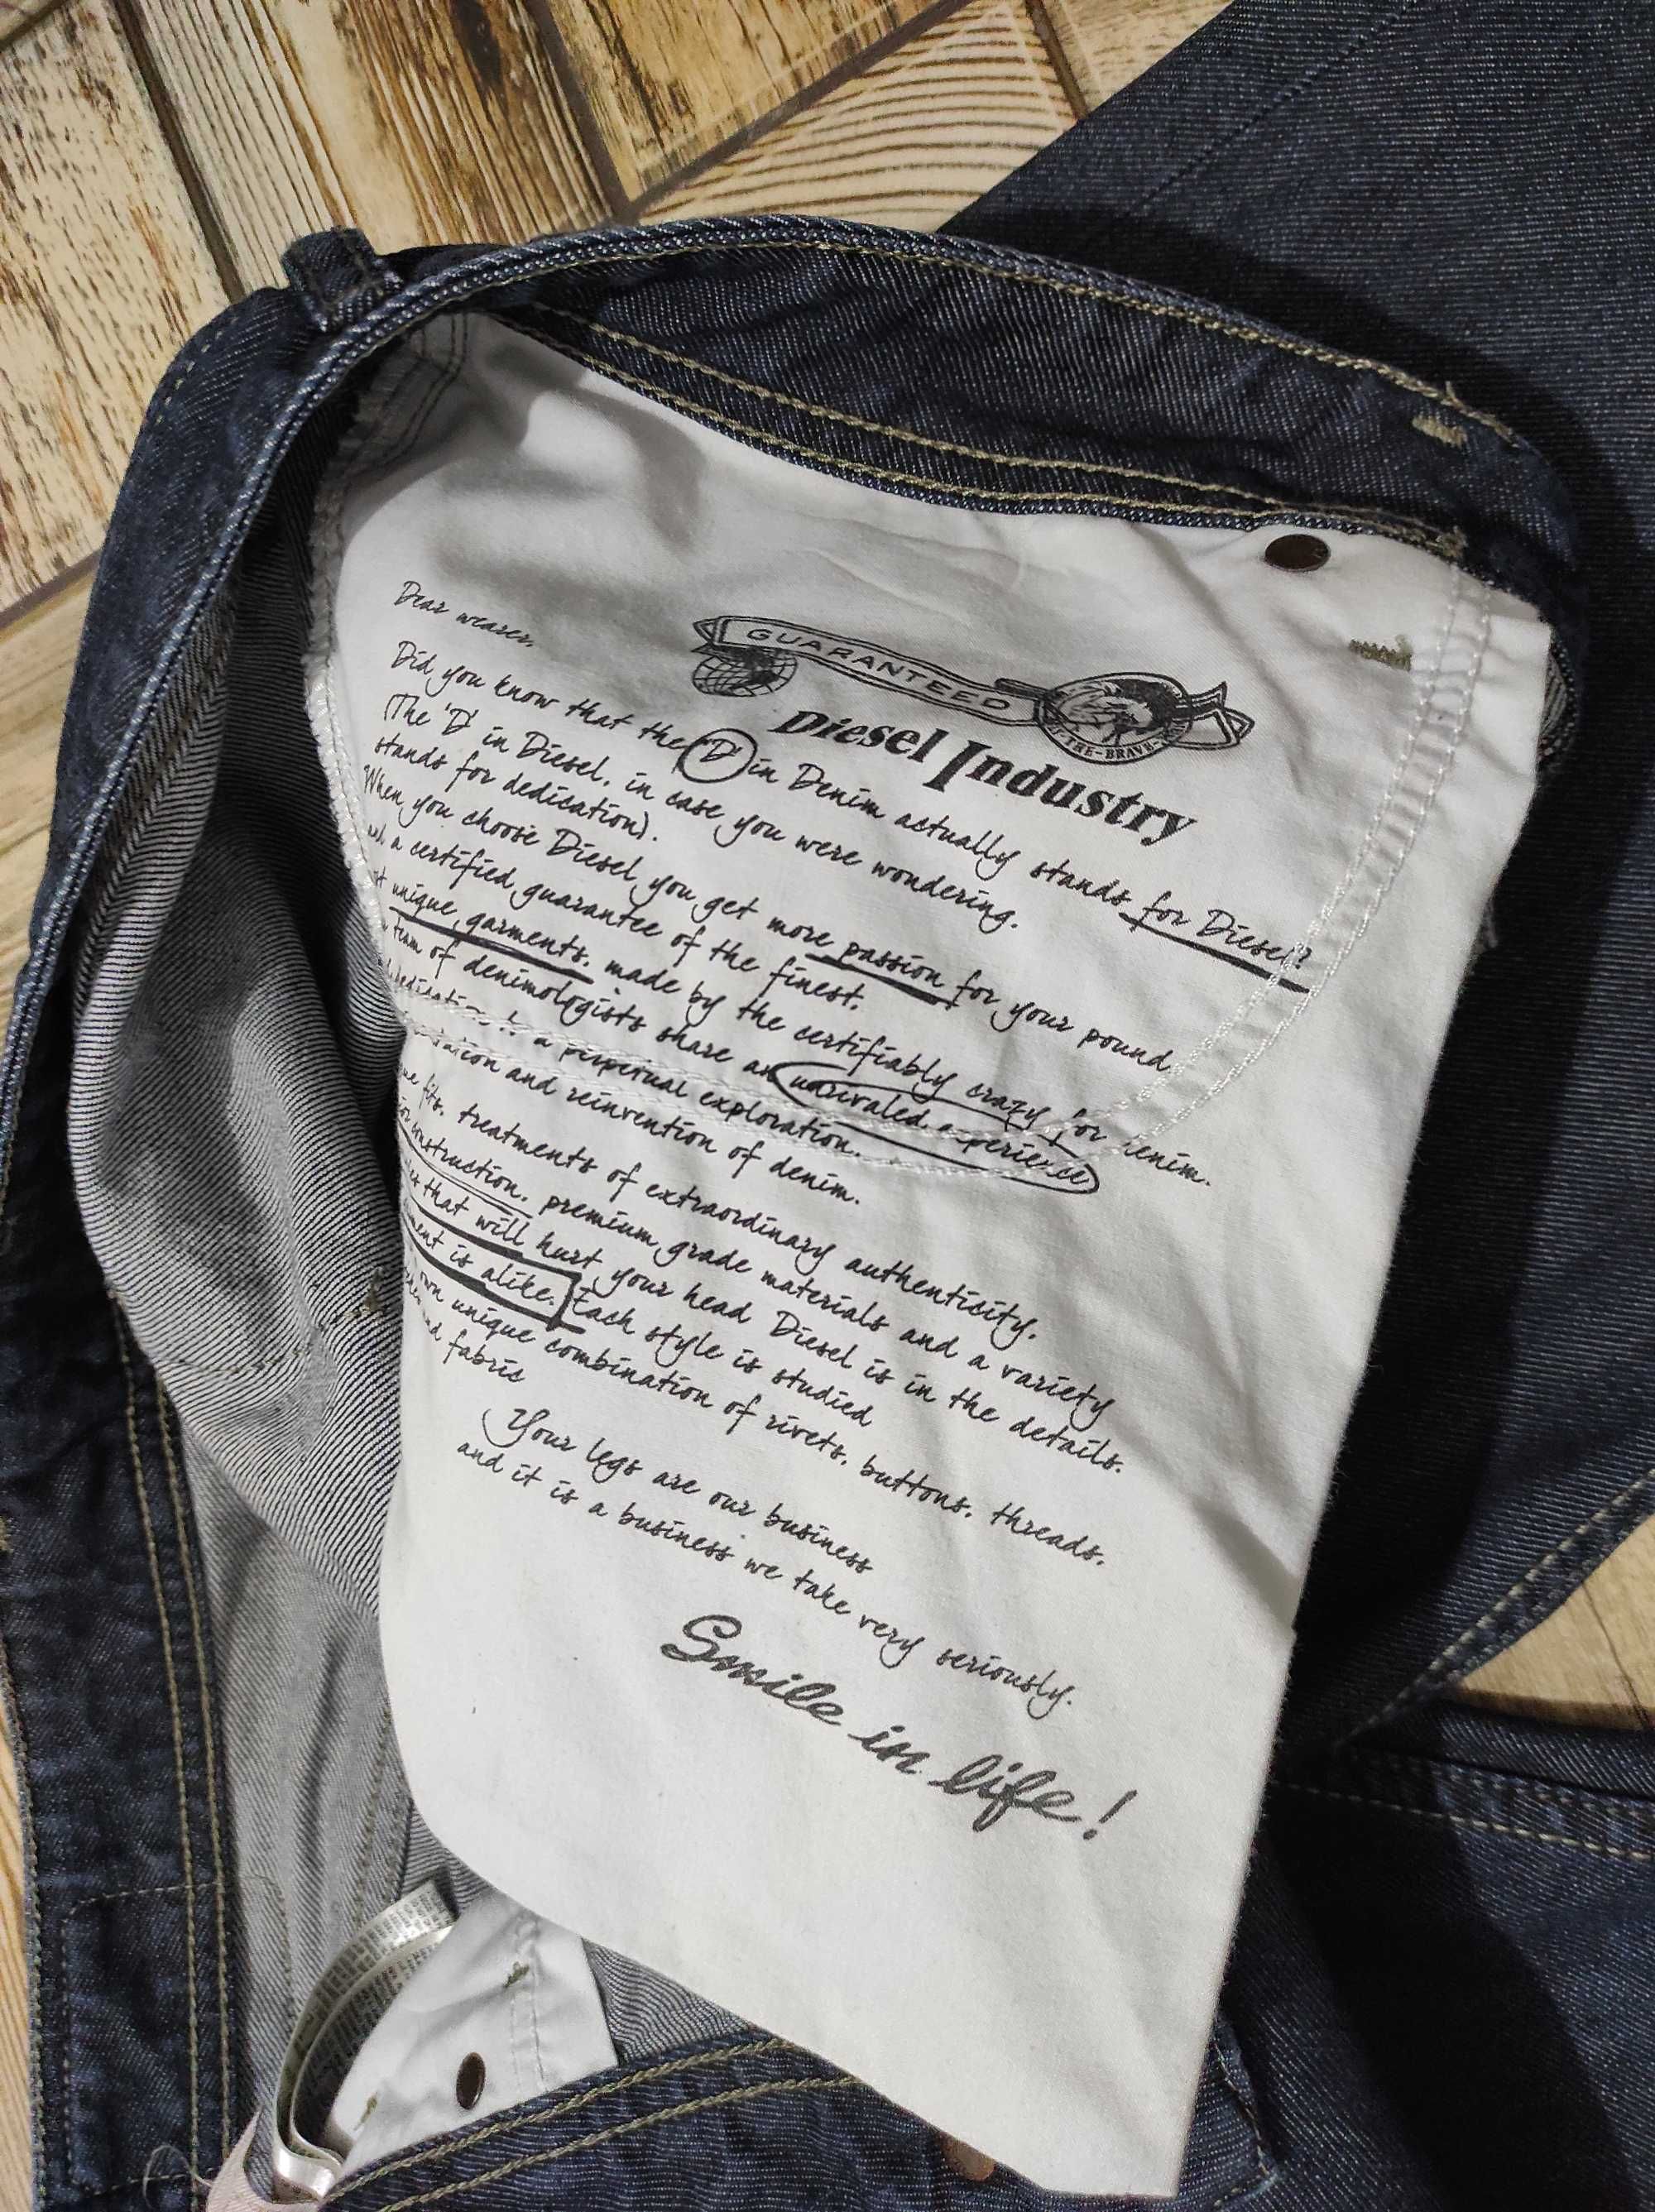 Dear wearer,
GUARANTEED
THE-BRAVE-
Diesel Industry
Did you know that the 'D' in Denim actually stands for Diesel?
(The 'D' in Diesel, in case you were wondering,
stands for dedication).
When you choose Diesel you get more passion for your pound
a certified guarantee of the finest,
unique garments, made by the certifiably crazy for denim.
team of denimologists share an unrivaled experience
a perpetual exploration,
and reinvention of denim.
fits, treatments of extraordinary authenticity,
construction, premium grade materials and a variety
that will hurt your head Diesel is in the details.
is alike. Each style is studied
own unique combination of rivets, buttons, threads,
fabric
Your legs are our business
and it is a business we take very seriously.
Smile in life!